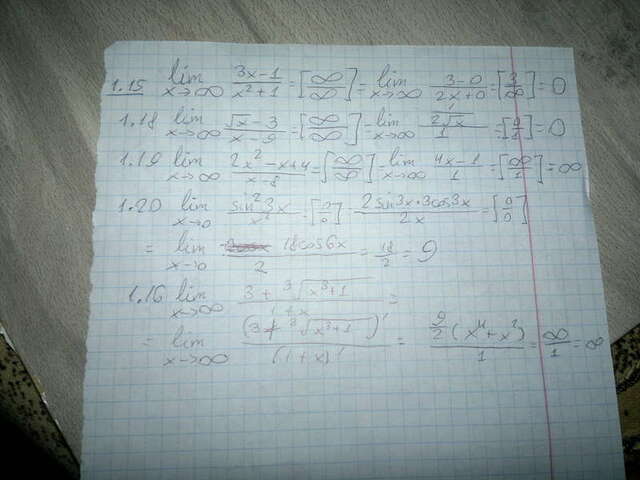 1.15 lim x→∞ (3x-1)/(x²+1) = [∞/∞] = lim x→∞ (3-0)/(2x+0) = [3/∞] = 0
1.18 lim x→∞ (√x-3)/(x-9) = [∞/∞] = lim x→∞ (1/(2√x))/1 = [0/1] = 0
1.19 lim x→∞ (2x²-x+4)/(x-8) = [∞/∞] = lim x→∞ (4x-1)/1 = [∞/1] = ∞
1.20 lim x→0 (sin²3x)/x² = [0/0] (2sin3x·3cos3x)/(2x) = [0/0]
= lim x→0 (18cos6x)/2 = 18/2 = 9
1.16 lim x→∞ (3+³√(x³+1))/(1+x) =
= lim x→∞ (3+³√(x³+1))'/(1+x)' = (9/2(x⁴+x²))/1 = ∞/1 = ∞